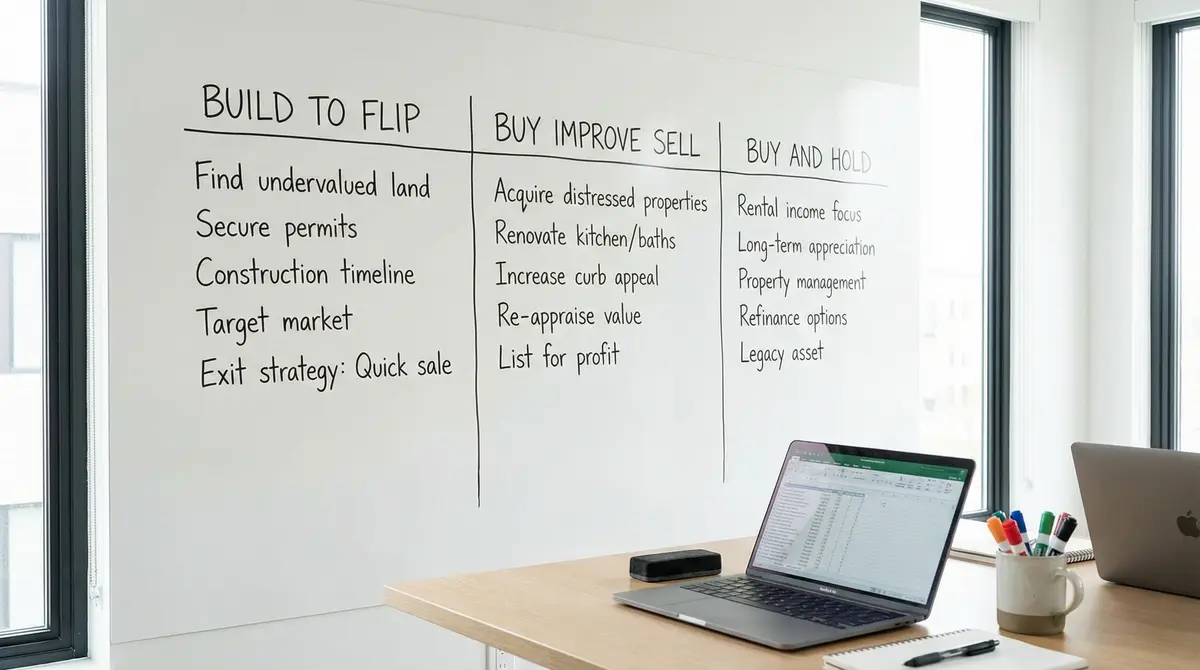 BUILD TO FLIP
Find undervalued land
Secure permits
Construction timeline
Target market
Exit strategy: Quick sale
BUY IMPROVE SELL
Acquire distressed properties
Renovate kitchen/baths
Increase curb appeal
Re-appraise value
List for profit
BUY AND HOLD
Rental income focus
Long-term appreciation
Property management
Refinance options
Legacy asset